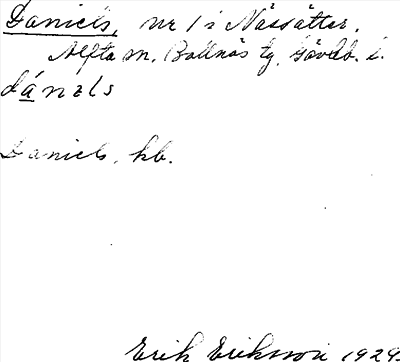 Daniels, nr 1 i Nässätter.
Alfta sn. Bollnäs tg. Gävleb. l.
dánəls
Daniels, hb.
Erik Eriksson 1929.